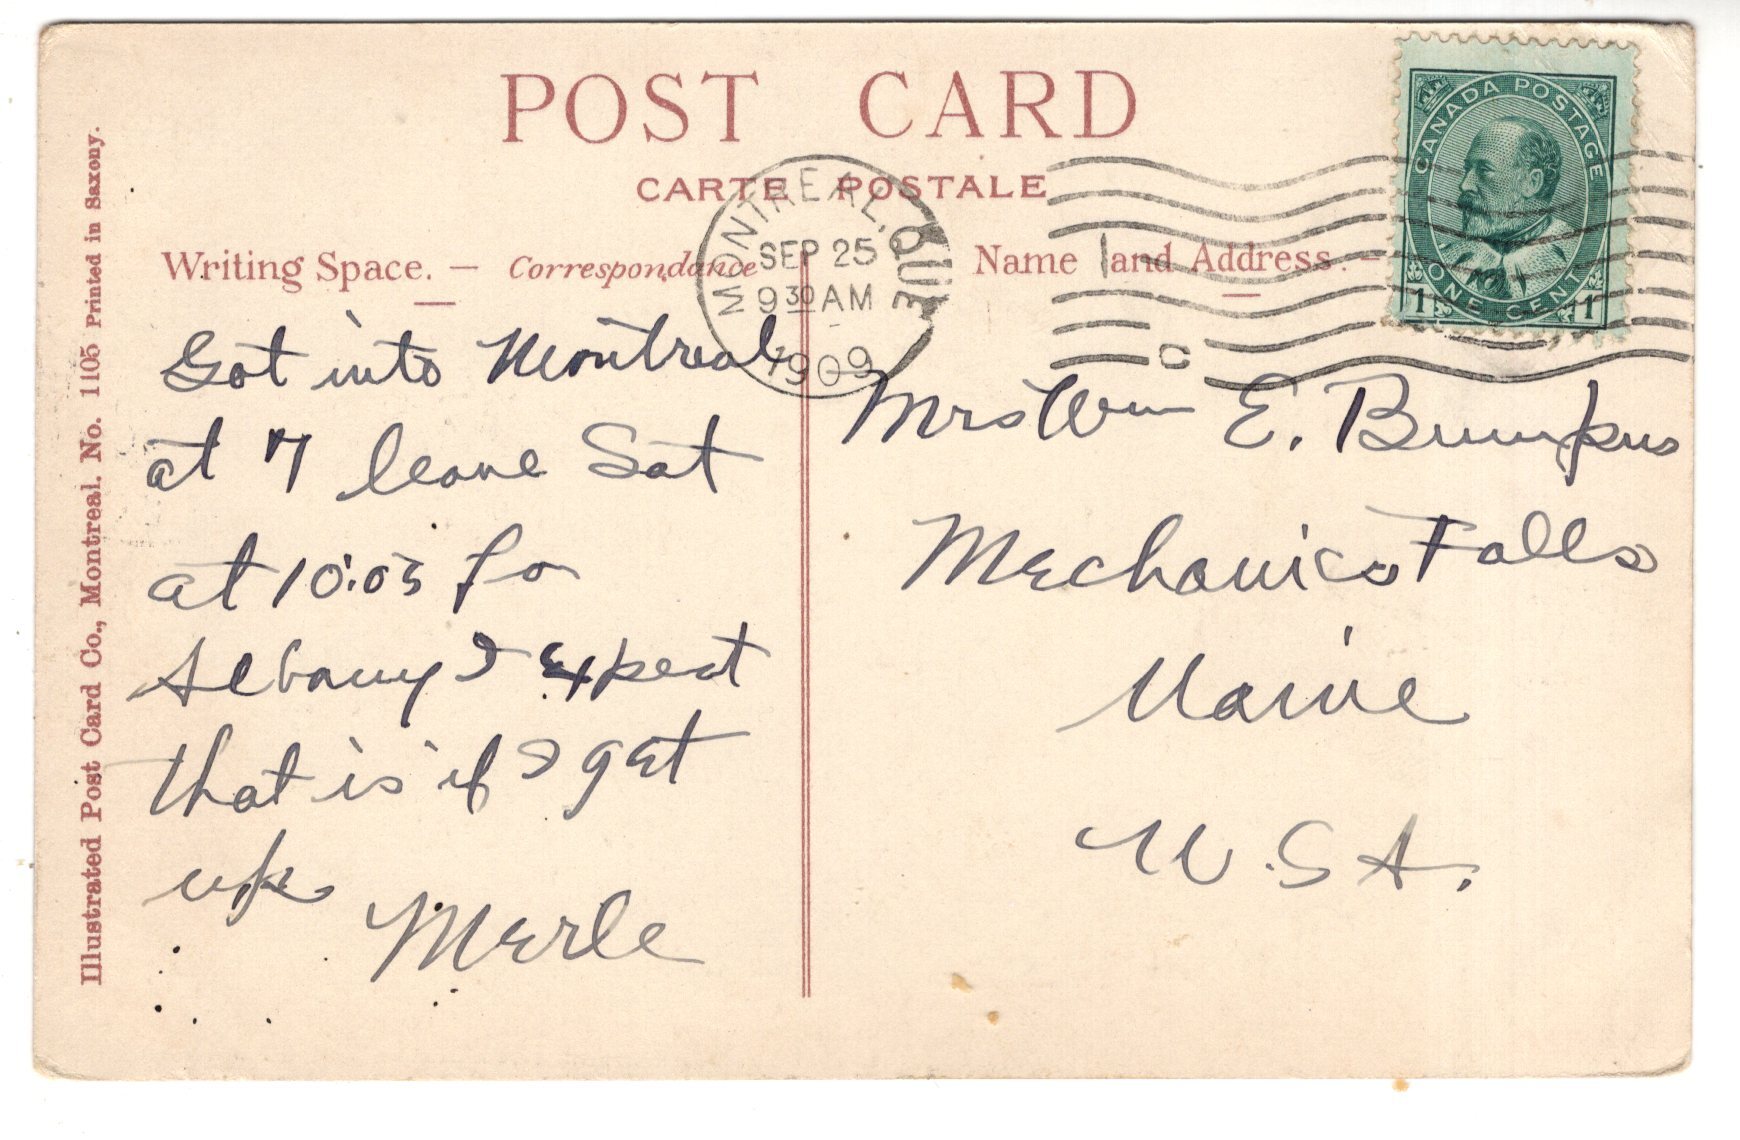 POST CARD
CARTE POSTALE
Writing Space. — Correspondance
Name and Address. —
MONTREAL, QUE
SEP 25
9 30 AM
1909
CANADA POSTAGE
ONE CENT
1 1
Got into Montreal
at 7 leave Sat
at 10:05 fo
Albany I expect
that is if I get
up
Merle
Mrs Wm E. Bumpus
Mechanics Falls
Maine
U.S.A.
Illustrated Post Card Co., Montreal. No. 1105 Printed in Saxony.